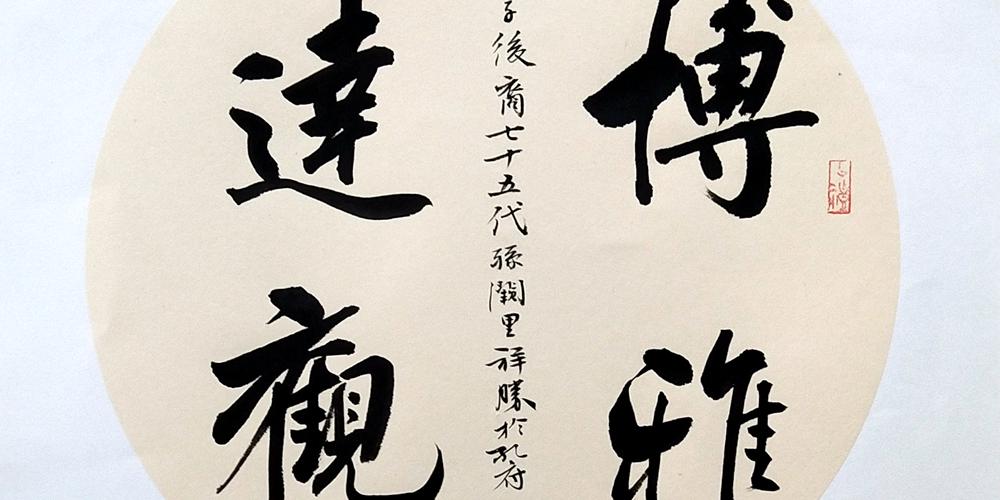 博雅
子後裔七十五代孫闕里祥勝於孔府
達觀